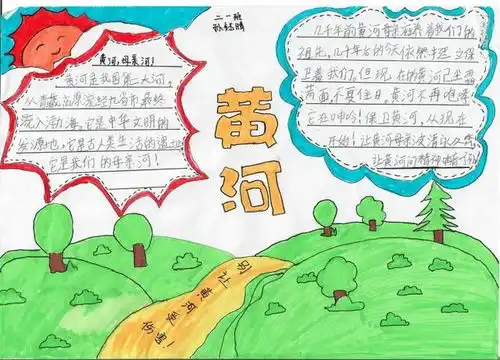 二一班
黄河,母亲河!
黄河是我国第二大河!
从青藏高原流经九省市最终
流入渤海,它是中华文明的
发源地,它是古人类生活的
它是我们的母亲河!
黄河
几千年前黄河母亲滋养着我们的
祖先,几千年后的今天依然在保
卫着我们。但现在的黄河已
面,不复往日,黄河不再咆哮
它在 保卫黄河,从现在
开始!让黄河母亲
让黄河精神
别让黄河受伤害!